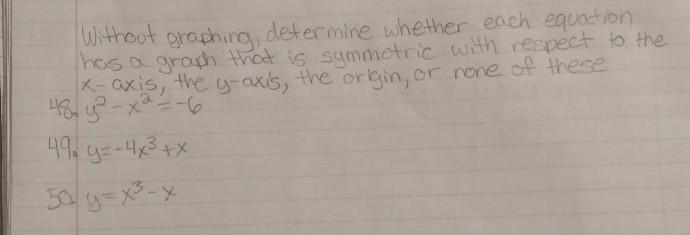 Without graphing, determine whether each equation
has a graph that is symmetric with respect to the
x-axis, the y-axis, the origin, or none of these
48. y² - x² = -6
49. y = -4x³ + x
50. y = x³ - x